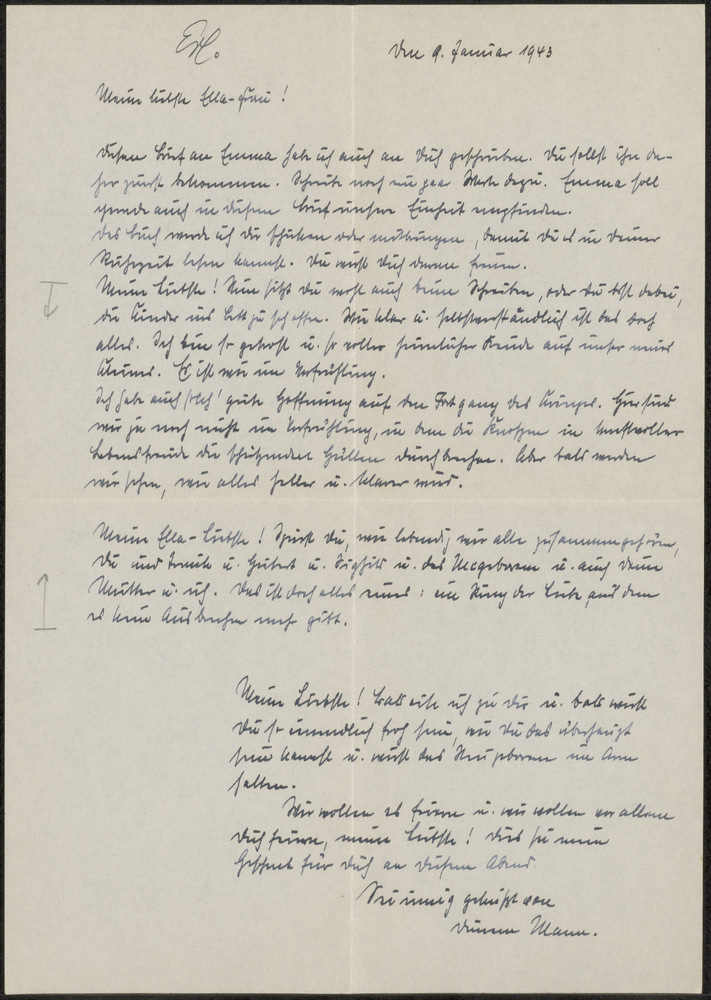 Den 9. Januar 1943
Meine liebste Ella-Frau!
Diesen Brief an Emma hab ich auch an Dich geschrieben. Du sollst ihn da-
her zuerst bekommen. Schreibe noch ein paar Worte dazu. Emma soll
gerade auch in diesem Brief unsere Einheit empfinden.
Das Buch werde ich dir schicken oder mitbringen, damit du es in Deiner
Ruhezeit lesen kannst. Du wirst Dich daran freuen.
Meine Liebste! Nun sitzt Du wohl auch beim Schreiben, oder Du bist dabei,
die Kinder ins Bett zu schaffen. Wie klar u. selbstverständlich ist das doch
alles. Ich bin so getrost u. so voller heimlicher Freude auf unser neues
Kleines. Es ist wie im Vorfrühling.
Ich habe auch gute Hoffnung auf den Fortgang des Krieges. Hier sind
wir ja noch nicht im Vorfrühling, in dem die Knospen in kraftvoller
Lebensfreude die schützenden Hüllen durchbrechen. Aber bald werden
wir sehen, wie alles heller u. klarer wird.
Meine Ella-Liebste! Spürst Du, wie lebendig wir alle zusammengehören,
Du und u. u. u. das Ungeborene u. auch Deine
Mutter u. ich. Das ist doch alles eines: ein Ring der Liebe aus dem
es kein Ausbrechen mehr gibt.
Meine Liebste! Bald eile ich zu dir u. bald wirst
Du so unendlich froh sein, wie Du das überhaupt
sein kannst u. wirst das Neugeborene im Arm
halten.
Wir wollen es feiern u. wir wollen vor allem
Dich feiern, meine Liebste! Dies sei mein
Geschenk für Dich an diesem Abend
Sei innig geküßt von
Deinem Mann.